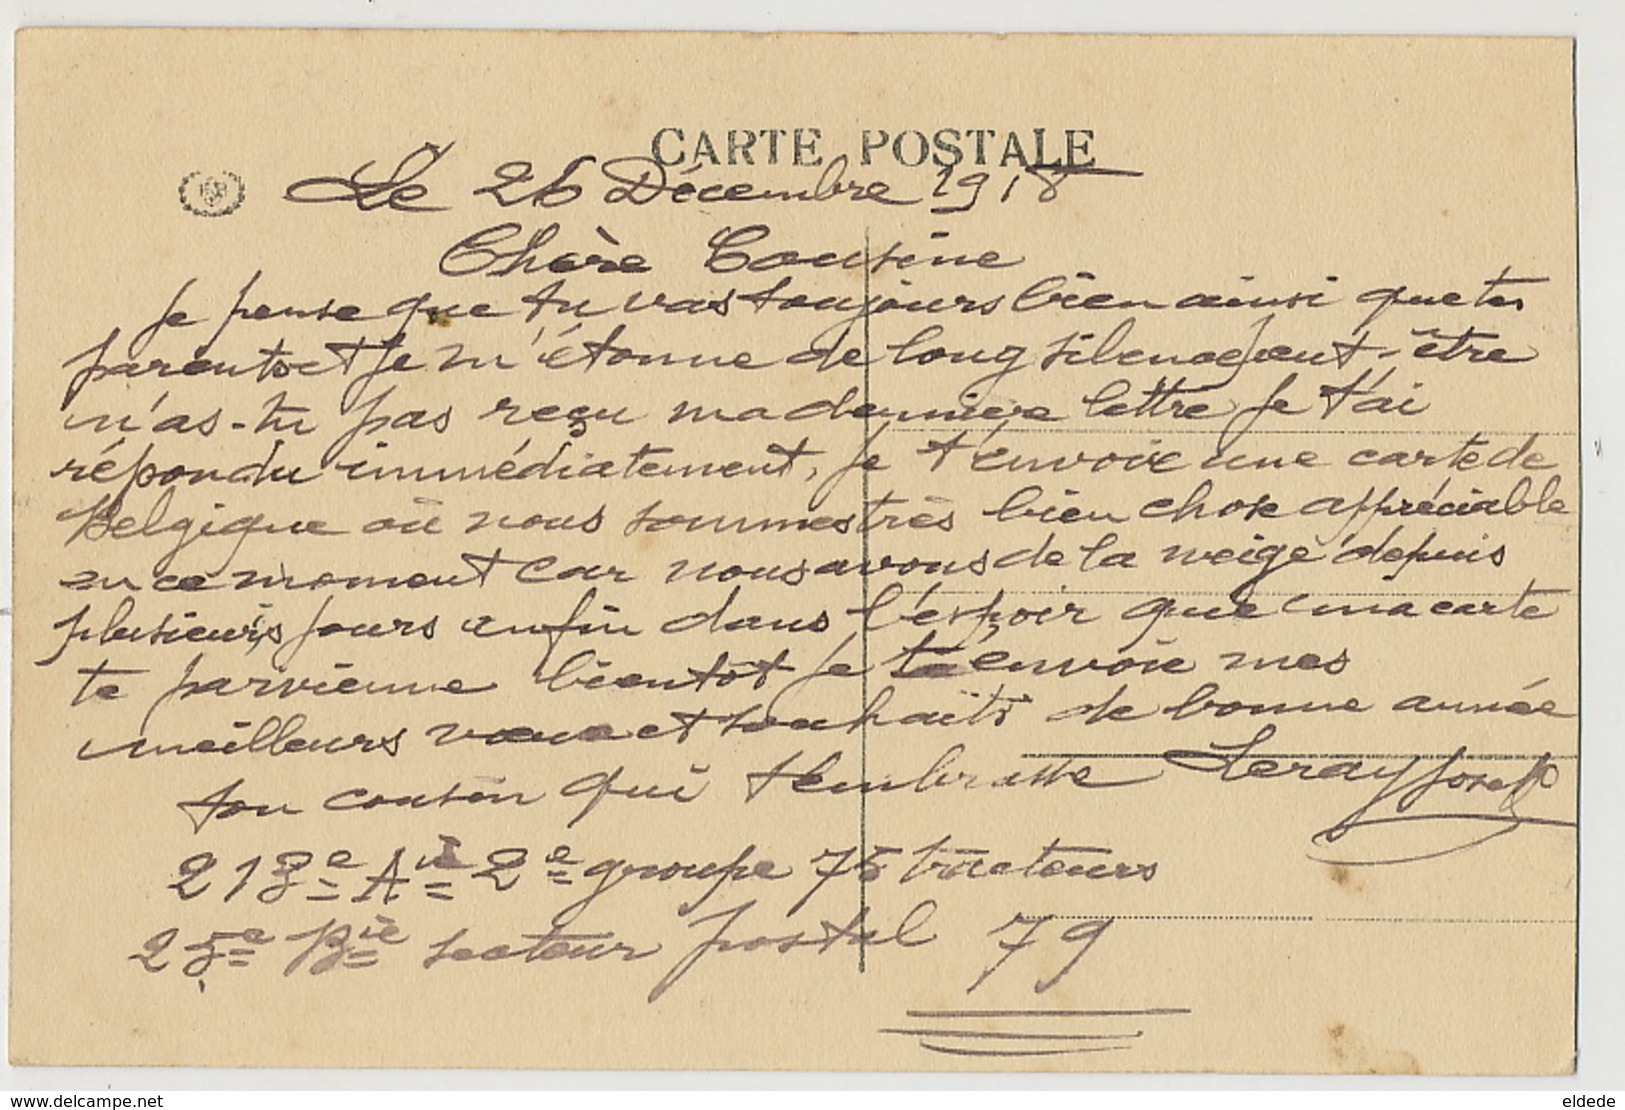 CARTE POSTALE
Le 26 Décembre 1918
Chère Cousine
Je pense que tu vas toujours bien ainsi que tes
parents et je m'étonne de long silence peut-être
n'as-tu pas reçu ma dernière lettre je t'ai
répondu immédiatement, je t'envoie une carte de
Belgique où nous sommes très bien chose appréciable
en ce moment car nous avons de la neige depuis
plusieurs jours enfin dans l'espoir que ma carte
te parvienne bientôt je te envoie mes
meilleurs vœux et souhaits de bonne année
ton cousin qui t'embrasse Leray Joseph
218e Aie 2e groupe 75 tracteurs
25e Bie secteur postal 79
www.delcampe.net
eldede